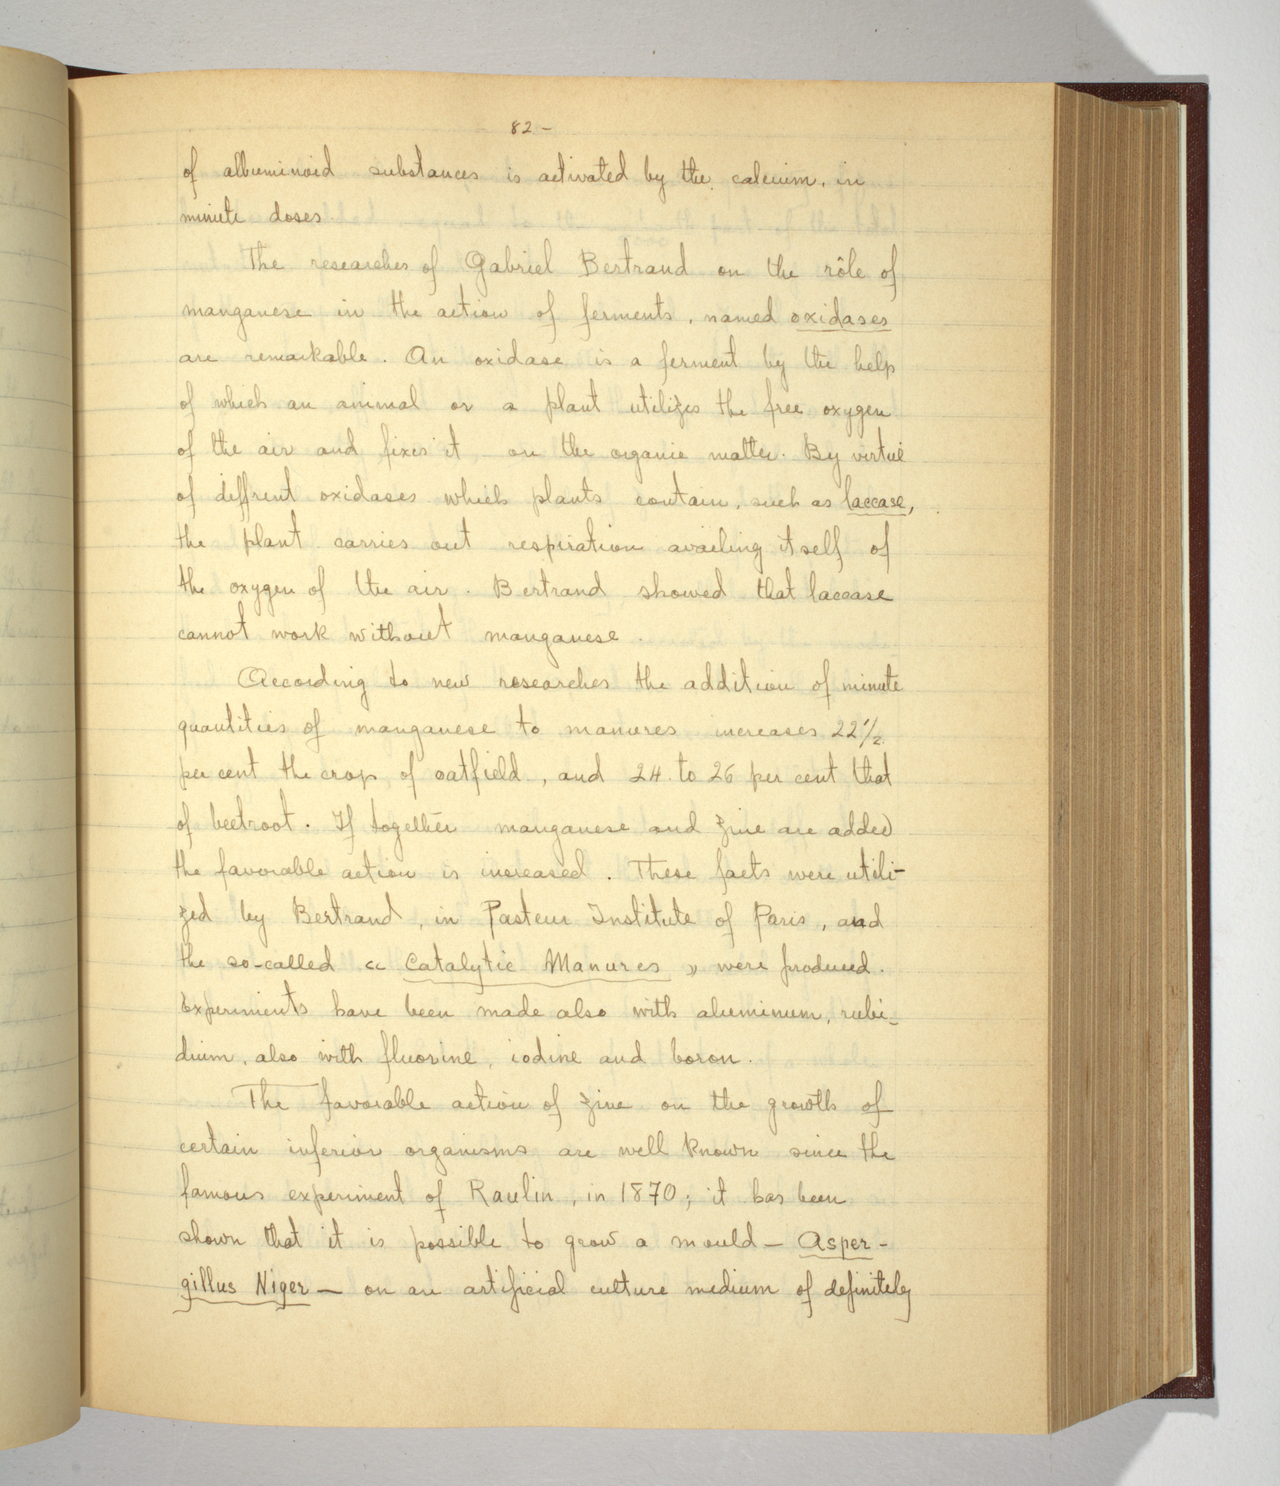 82 -
of albuminoid substances is activated by the calcium, in
minute doses.
The researches of Gabriel Bertrand on the rôle of
manganese in the action of ferments, named oxidases
are remarkable. An oxidase is a ferment by the help
of which an animal or a plant utilizes the free oxygen
of the air and fixes it on the organic matter. By virtue
of diffrent oxidases which plants contain, such as laccase,
the plant carries out respiration availing itself of
the oxygen of the air. Bertrand showed that laccase
cannot work without manganese.
According to new researches the addition of minute
quantities of manganese to manures increases 22 1/2
per cent the crop of oatfield, and 24 to 26 per cent that
of beetroot. If together manganese and zinc are added
the favorable action is increased. These facts were utili-
zed by Bertrand, in Pasteur Institute of Paris, and
the so-called « Catalytic Manures » were produced.
Experiments have been made also with aluminum, rubi-
dium, also with fluorine, iodine and boron.
The favorable action of zinc on the growth of
certain inferior organisms are well known since the
famous experiment of Raulin, in 1870; it has been
shown that it is possible to grow a mould — Asper-
gillus Niger — on an artificial culture medium of definitely